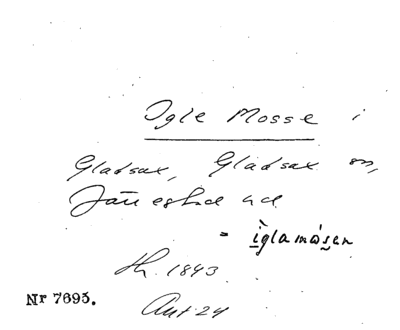 Igle Mosse i
Gladsax, Gladsax sn,
Järrestad hd
= ìglamåsen
lh. 1843
Akt 24
Nr 7695.